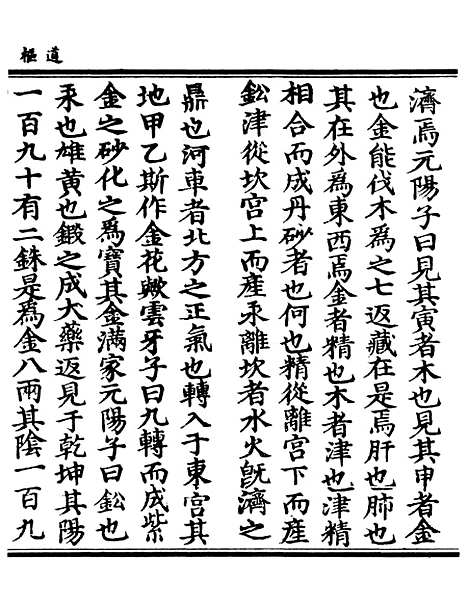 道樞
濟焉元陽子曰見其寅者木也見其申者金
也金能伐木為之七返藏在是焉肝也肺也
其在外為東西焉金者精也木者津也津精
相合而成丹砂者也何也精從離宮下而產
鈆津從坎宮上而產汞離坎者水火旣濟之
鼎也河車者北方之正氣也轉入于東宮其
地甲乙斯作金花歟雲牙子曰九轉而成紫
金之砂化之為寶其金滿家元陽子曰鈆也
汞也雄黃也鍛之成大藥返見于乾坤其陽
一百九十有二銖是為金八兩其陰一百九